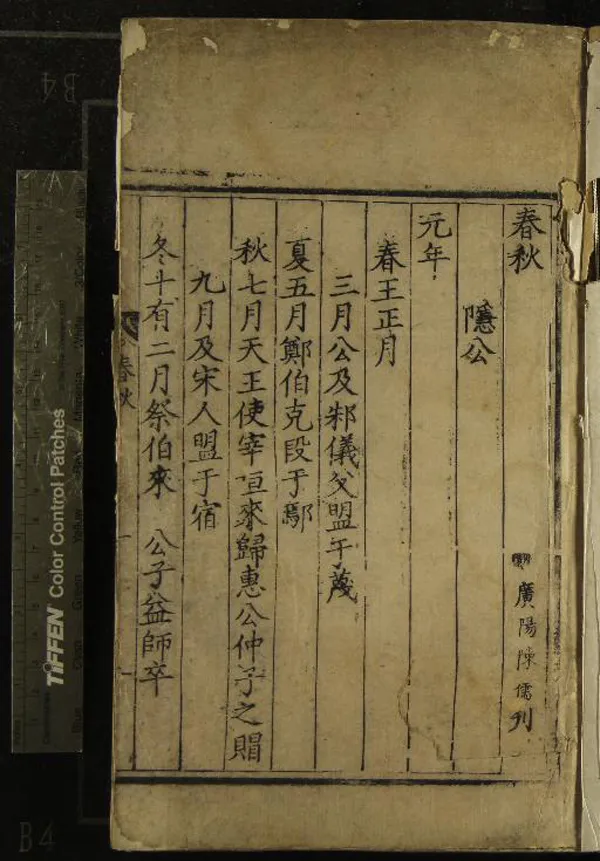 春秋
廣陽陳儒刋
隱公
元年
春王正月
三月公及邾儀父盟于蔑
夏五月鄭伯克段于鄢
秋七月天王使宰咺來歸惠公仲子之賵
九月及宋人盟于宿
冬十有二月祭伯來 公子益師卒
春秋
一
TIFFEN Color Control Patches
B4
B4